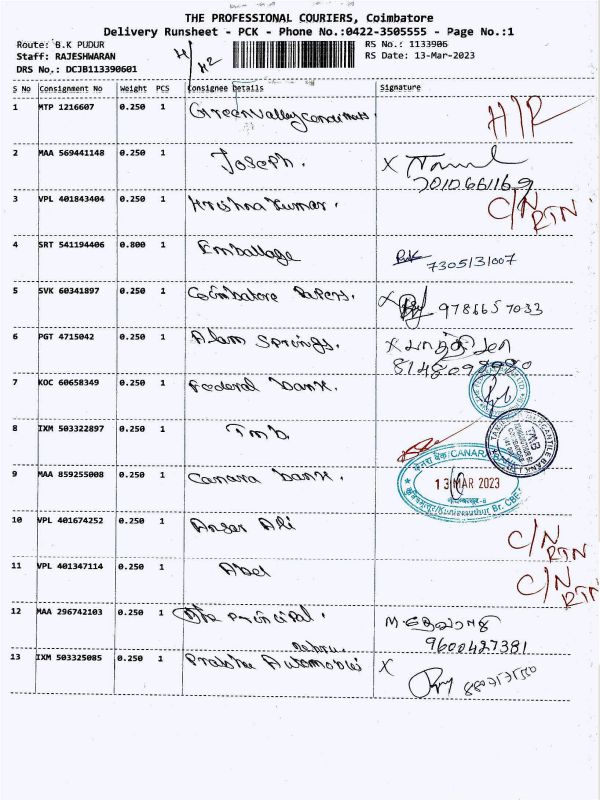 THE PROFESSIONAL COURIERS, Coimbatore
Delivery Runsheet - PCK - Phone No.:0422-3505555 - Page No.:1
Route: B.K PUDUR
Staff: RAJESHWARAN
DRS No.: DCJB113390601
RS No.: 1133906
RS Date: 13-Mar-2023
S No Consignment No Weight PCS Consignee Details Signature
1 MTP 1216607 0.250 1 Green Valley
2 MAA 569441148 0.250 1 Joseph.
3 VPL 401843404 0.250 1 Krishna Kumar. C/N RTN
4 SRT 541194406 0.800 1 Emballage 7305131007
5 SVK 60341897 0.250 1 Coimbatore Papers. 9786657033
6 PGT 4715042 0.250 1 Springs. X
7 KOC 60658349 0.250 1 Federal bank.
8 IXM 503322897 0.250 1 Tmb.
9 MAA 859255008 0.250 1 Canara bank. CANARA 13 MAR 2023
10 VPL 401674252 0.250 1 Ansar Ali C/N RTN
11 VPL 401347114 0.250 1 Abel C/N RTN
12 MAA 296742103 0.250 1 The principal. 9600427381
13 IXM 503325085 0.250 1 Automobiles X